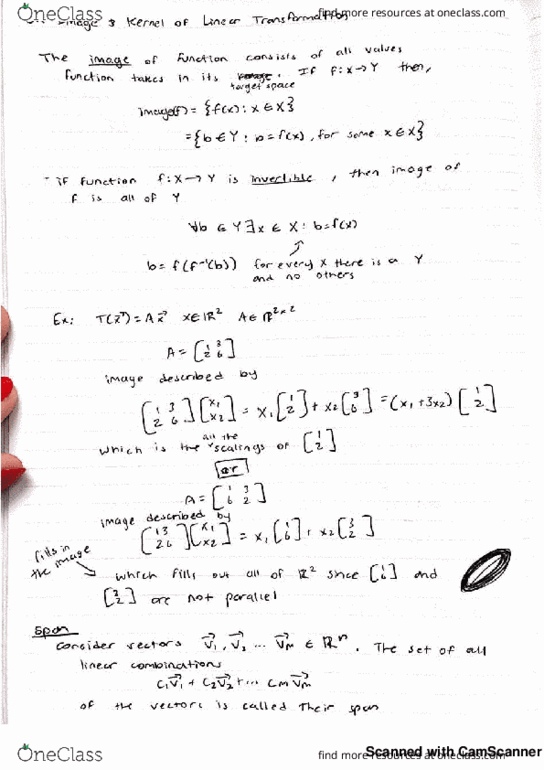 OneClass
find more resources at oneclass.com
Image & Kernel of Linear Transformation
The image of function consists of all values
function takes in its target space. If f: X→Y then,
image(f) = {f(x) : x ∈ X}
= {b ∈ Y : b = f(x), for some x ∈ X}
- if function f: X→Y is invertible, then image of
f is all of Y
∀b ∈ Y ∃x ∈ X : b = f(x)
b = f(f⁻¹(b)) for every x there is a Y
and no others
Ex: T(x⃗) = Ax⃗ x∈ℝ² A∈ℝ²ˣ²
A = [1 3; 2 6]
image described by
[1 3; 2 6][x₁; x₂] = x₁[1; 2] + x₂[3; 6] = (x₁ + 3x₂)[1; 2]
which is the all the scalings of [1; 2]
or
A = [1 3; 6 2]
image described by
[1 3; 2 6][x₁; x₂] = x₁[1; 6] + x₂[3; 2]
fills in
the image
which fills out all of ℝ² since [1; 6] and
[3; 2] are not parallel
Span
consider vectors v⃗₁, v⃗₂ ... v⃗m ∈ ℝⁿ. The set of all
linear combinations
c₁v⃗₁ + c₂v⃗₂ + ... cmv⃗m
of the vectors is called their span
OneClass
find more resources at oneclass.com
Scanned with CamScanner